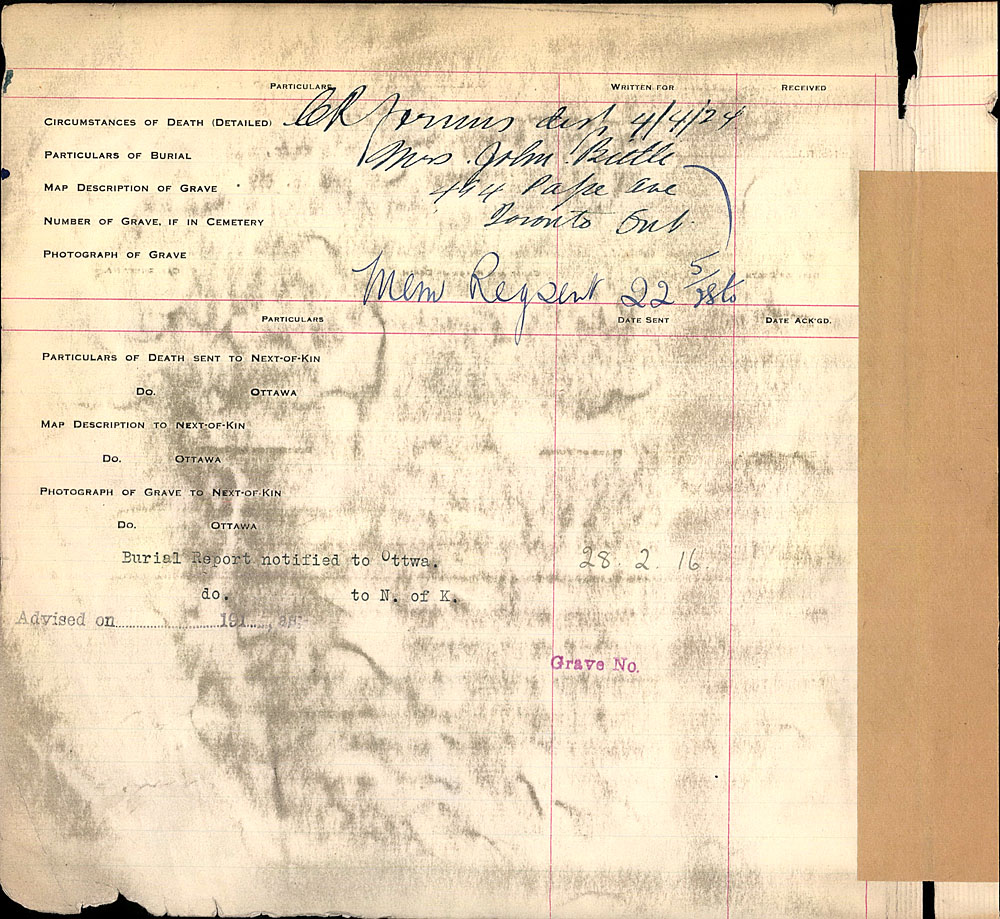 PARTICULARS WRITTEN FOR RECEIVED
CIRCUMSTANCES OF DEATH (DETAILED) CR forms desp 4/4/24
PARTICULARS OF BURIAL Mrs. John
MAP DESCRIPTION OF GRAVE 494 Pape Ave
NUMBER OF GRAVE, IF IN CEMETERY Toronto Ont.
PHOTOGRAPH OF GRAVE
Mem Reg sent 22
PARTICULARS DATE SENT DATE ACK'GD.
PARTICULARS OF DEATH SENT TO NEXT-OF-KIN
DO. OTTAWA
MAP DESCRIPTION TO NEXT-OF-KIN
DO. OTTAWA
PHOTOGRAPH OF GRAVE TO NEXT-OF-KIN
DO. OTTAWA
Burial Report notified to Ottwa. 28. 2. 16.
do. to N. of K.
Advised on 191
Grave No.